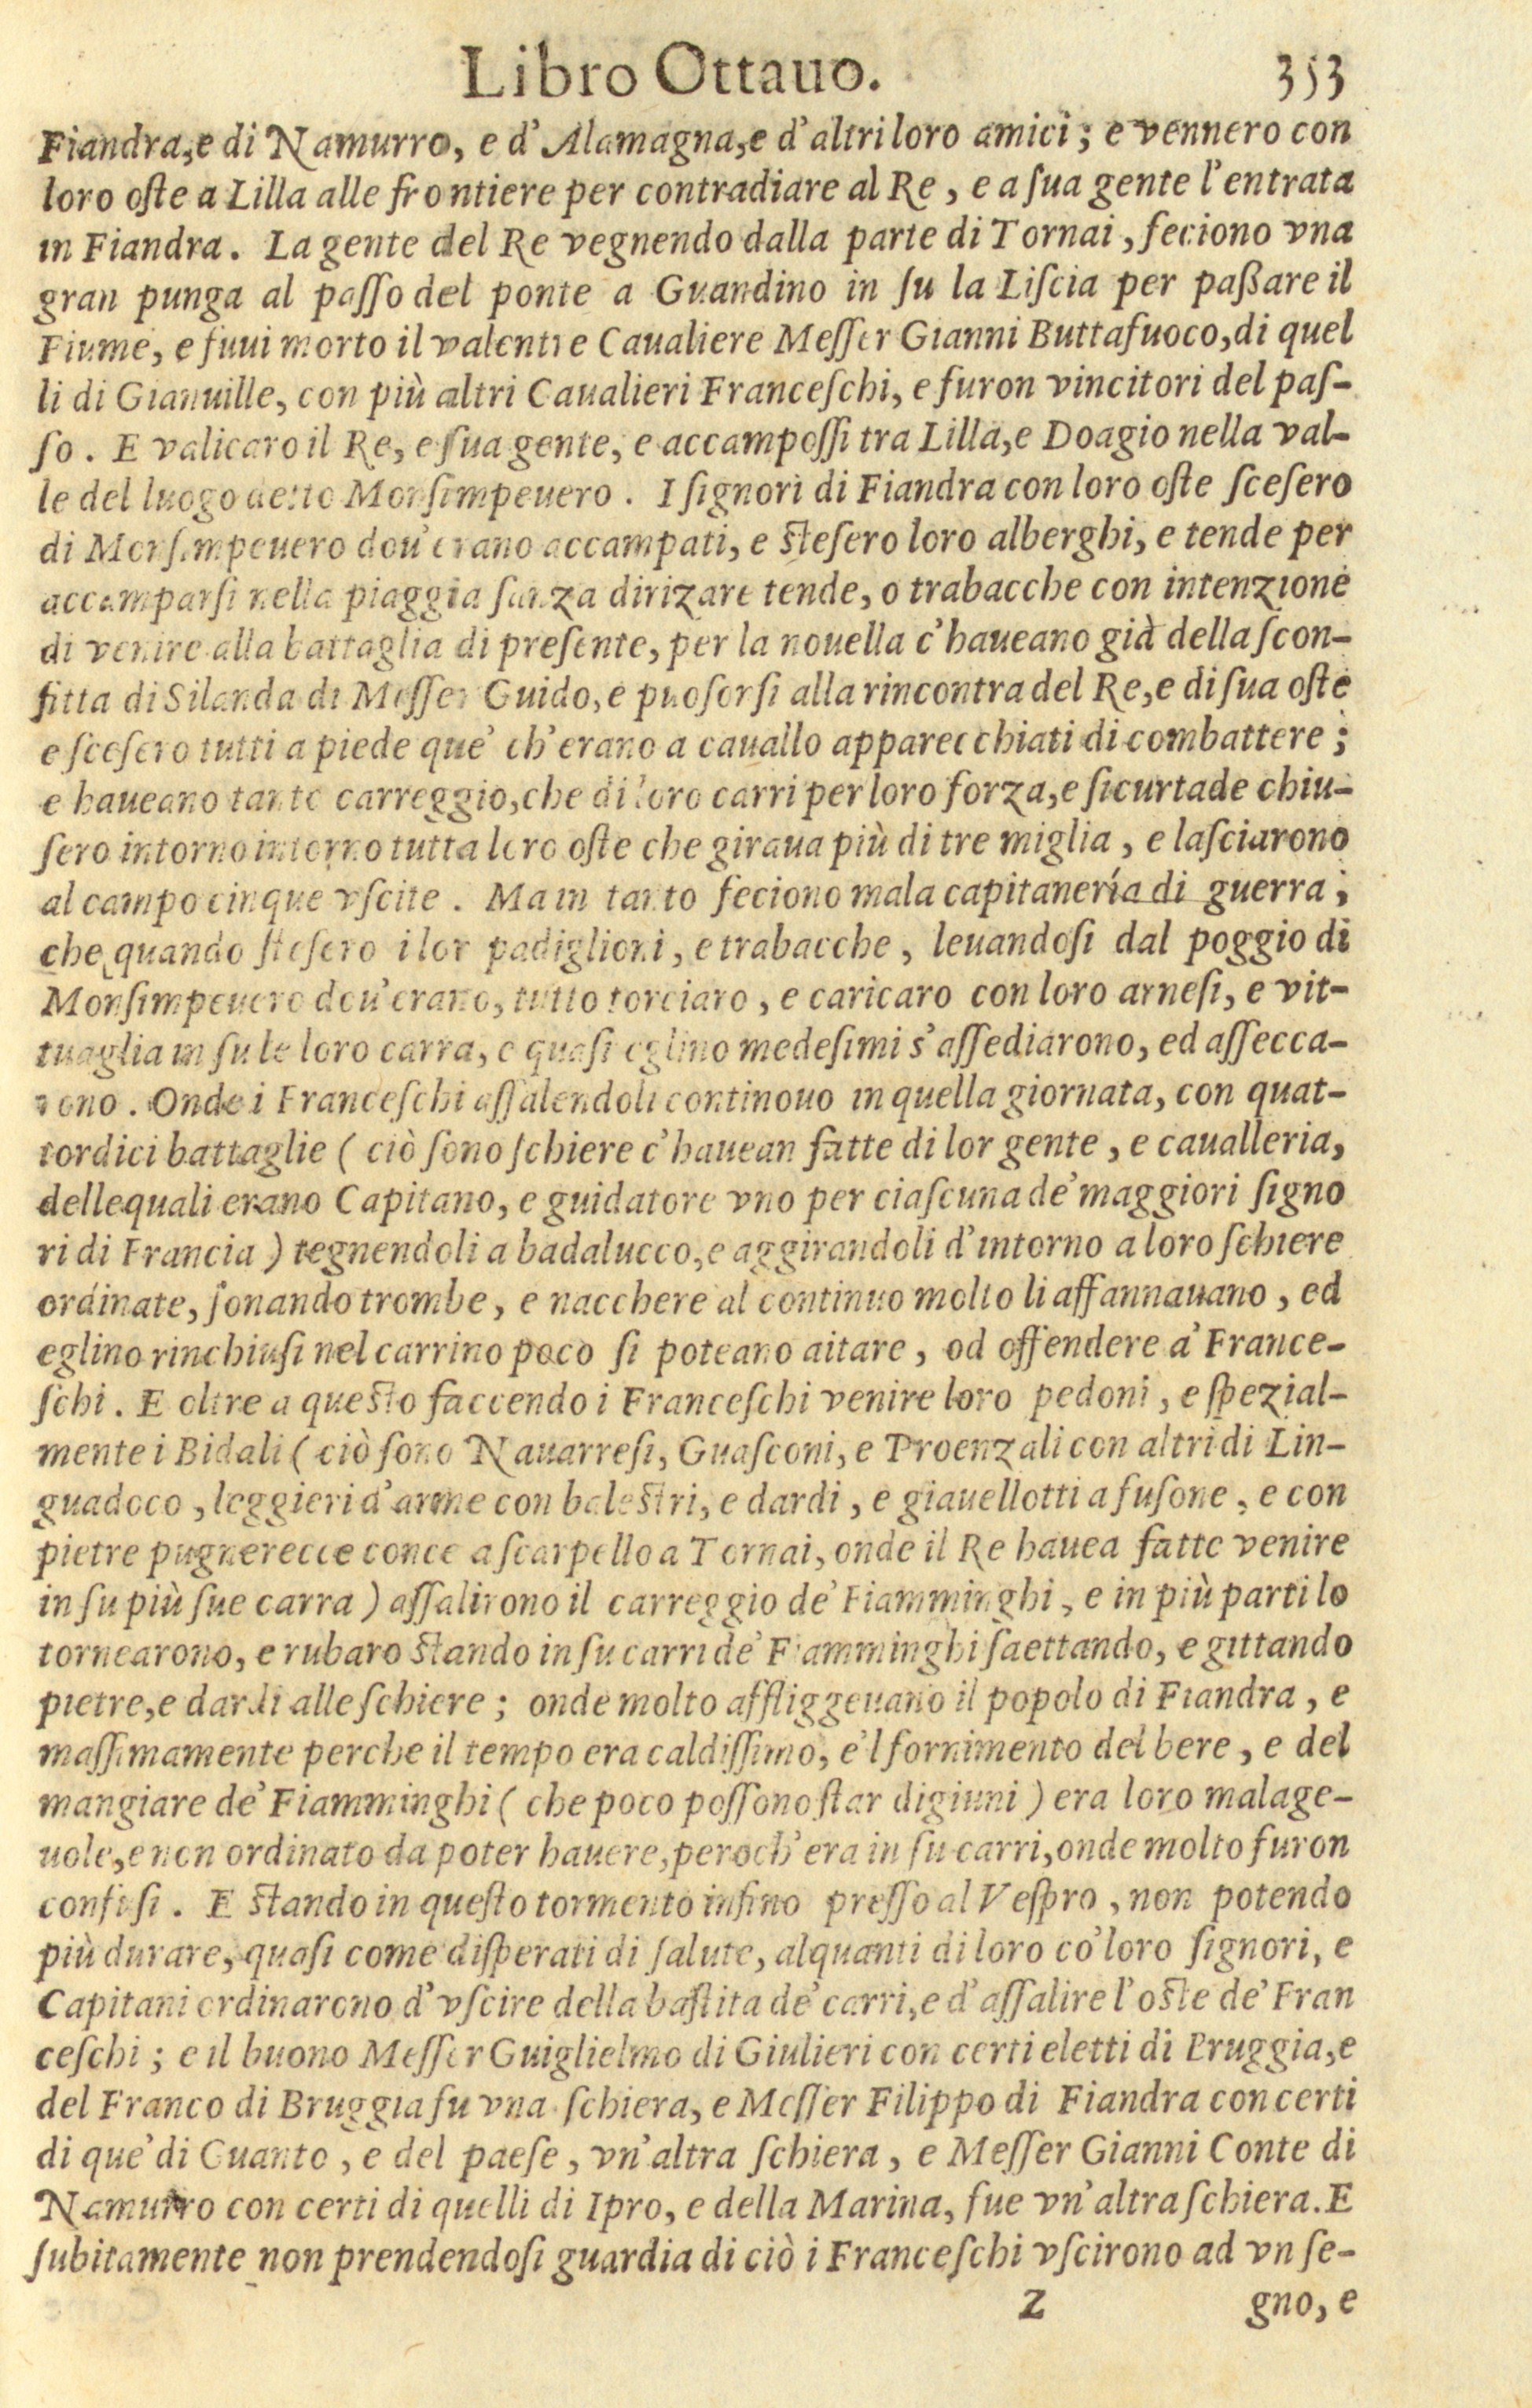 Libro Ottauo. 353
Fiandra, e di Namurro, e d'Alamagna, e d'altri loro amici; e vennero con
loro oſte a Lilla alle frontiere per contradiare al Re, e a ſua gente l'entrata
in Fiandra. La gente del Re vegnendo dalla parte di Tornai, feciono vna
gran punga al paſſo del ponte a Guandino in ſu la Liſcia per paßare il
Fiume, e fuui morto il valentre Caualiere Meſſer Gianni Buttafuoco, di quel
li di Gianuille, con più altri Caualieri Franceſchi, e furon vincitori del paſ-
ſo. E valicaro il Re, e ſua gente, e accampoſſi tra Lilla, e Doagio nella val-
le del luogo detto Monſimpeuero. I ſignori di Fiandra con loro oſte ſceſero
di Monſimpeuero dou'erano accampati, e ſteſero loro alberghi, e tende per
accamparſi nella piaggia ſanza dirizare tende, o trabacche con intenzione
di venire alla battaglia di preſente, per la nouella c'haueano già della ſcon-
fitta di Silanda di Meſſer Guido, e puoſorſi alla rincontra del Re, e di ſua oſte
e ſceſero tutti a piede que' ch'erano a cauallo apparecchiati di combattere;
e haueano tanto carreggio, che di loro carri per loro forza, e ſicurtade chiu-
ſero intorno intorno tutta loro oſte che giraua più di tre miglia, e laſciarono
al campo cinque vſcite. Ma in tanto feciono mala capitanería di guerra;
che quando ſteſero i lor padiglioni, e trabacche, leuandoſi dal poggio di
Monſimpeuero dou'erano, tutto torciaro, e caricaro con loro arneſi, e vit-
tuaglia in ſu le loro carra, e quaſi eglino medeſimi s'aſſediarono, ed aſſecca-
rono. Onde i Franceſchi aſſalendoli continouo in quella giornata, con quat-
tordici battaglie (ciò ſono ſchiere c'hauean fatte di lor gente, e caualleria,
delle quali erano Capitano, e guidatore vno per ciaſcuna de' maggiori ſigno
ri di Francia) tegnendoli a badalucco, e aggirandoli d'intorno a loro ſchiere
ordinate, ſonando trombe, e nacchere al continuo molto li affannauano, ed
eglino rinchiuſi nel carrino poco ſi poteano aitare, od offendere a' France-
ſchi. E oltre a queſto faccendo i Franceſchi venire loro pedoni, e ſpezial-
mente i Bidali (ciò ſono Nauarreſi, Guaſconi, e Proenzali con altri di Lin-
guadoco, leggieri d'arme con baleſtri, e dardi, e giauellotti a fuſone, e con
pietre pugnerecce conce a ſcarpello a Tornai, onde il Re hauea fatte venire
in ſu più ſue carra) aſſalirono il carreggio de' Fiamminghi, e in più parti lo
tornearono, e rubaro ſtando in ſu carri de' Fiamminghi ſaettando, e gittando
pietre, e dardi alle ſchiere; onde molto affliggeuano il popolo di Fiandra, e
maſſimamente perche il tempo era caldiſſimo, e'l fornimento del bere, e del
mangiare de' Fiamminghi (che poco poſſono ſtar digiuni) era loro malage-
uole, e non ordinato da poter hauere, peroch'era in ſu carri, onde molto furon
confuſi. E ſtando in queſto tormento infino preſſo al Veſpro, non potendo
più durare, quaſi come diſperati di ſalute, alquanti di loro co' loro ſignori, e
Capitani ordinarono d'vſcire della baſtita de' carri, e d'aſſalire l'oſte de' Fran
ceſchi; e il buono Meſſer Guiglielmo di Giulieri con certi eletti di Bruggia, e
del Franco di Bruggia fu vna ſchiera, e Meſſer Filippo di Fiandra con certi
di que' di Guanto, e del paeſe, vn'altra ſchiera, e Meſſer Gianni Conte di
Namurro con certi di quelli di Ipro, e della Marina, fue vn'altra ſchiera. E
ſubitamente non prendendoſi guardia di ciò i Franceſchi vſcirono ad vn ſe-
Z gno, e